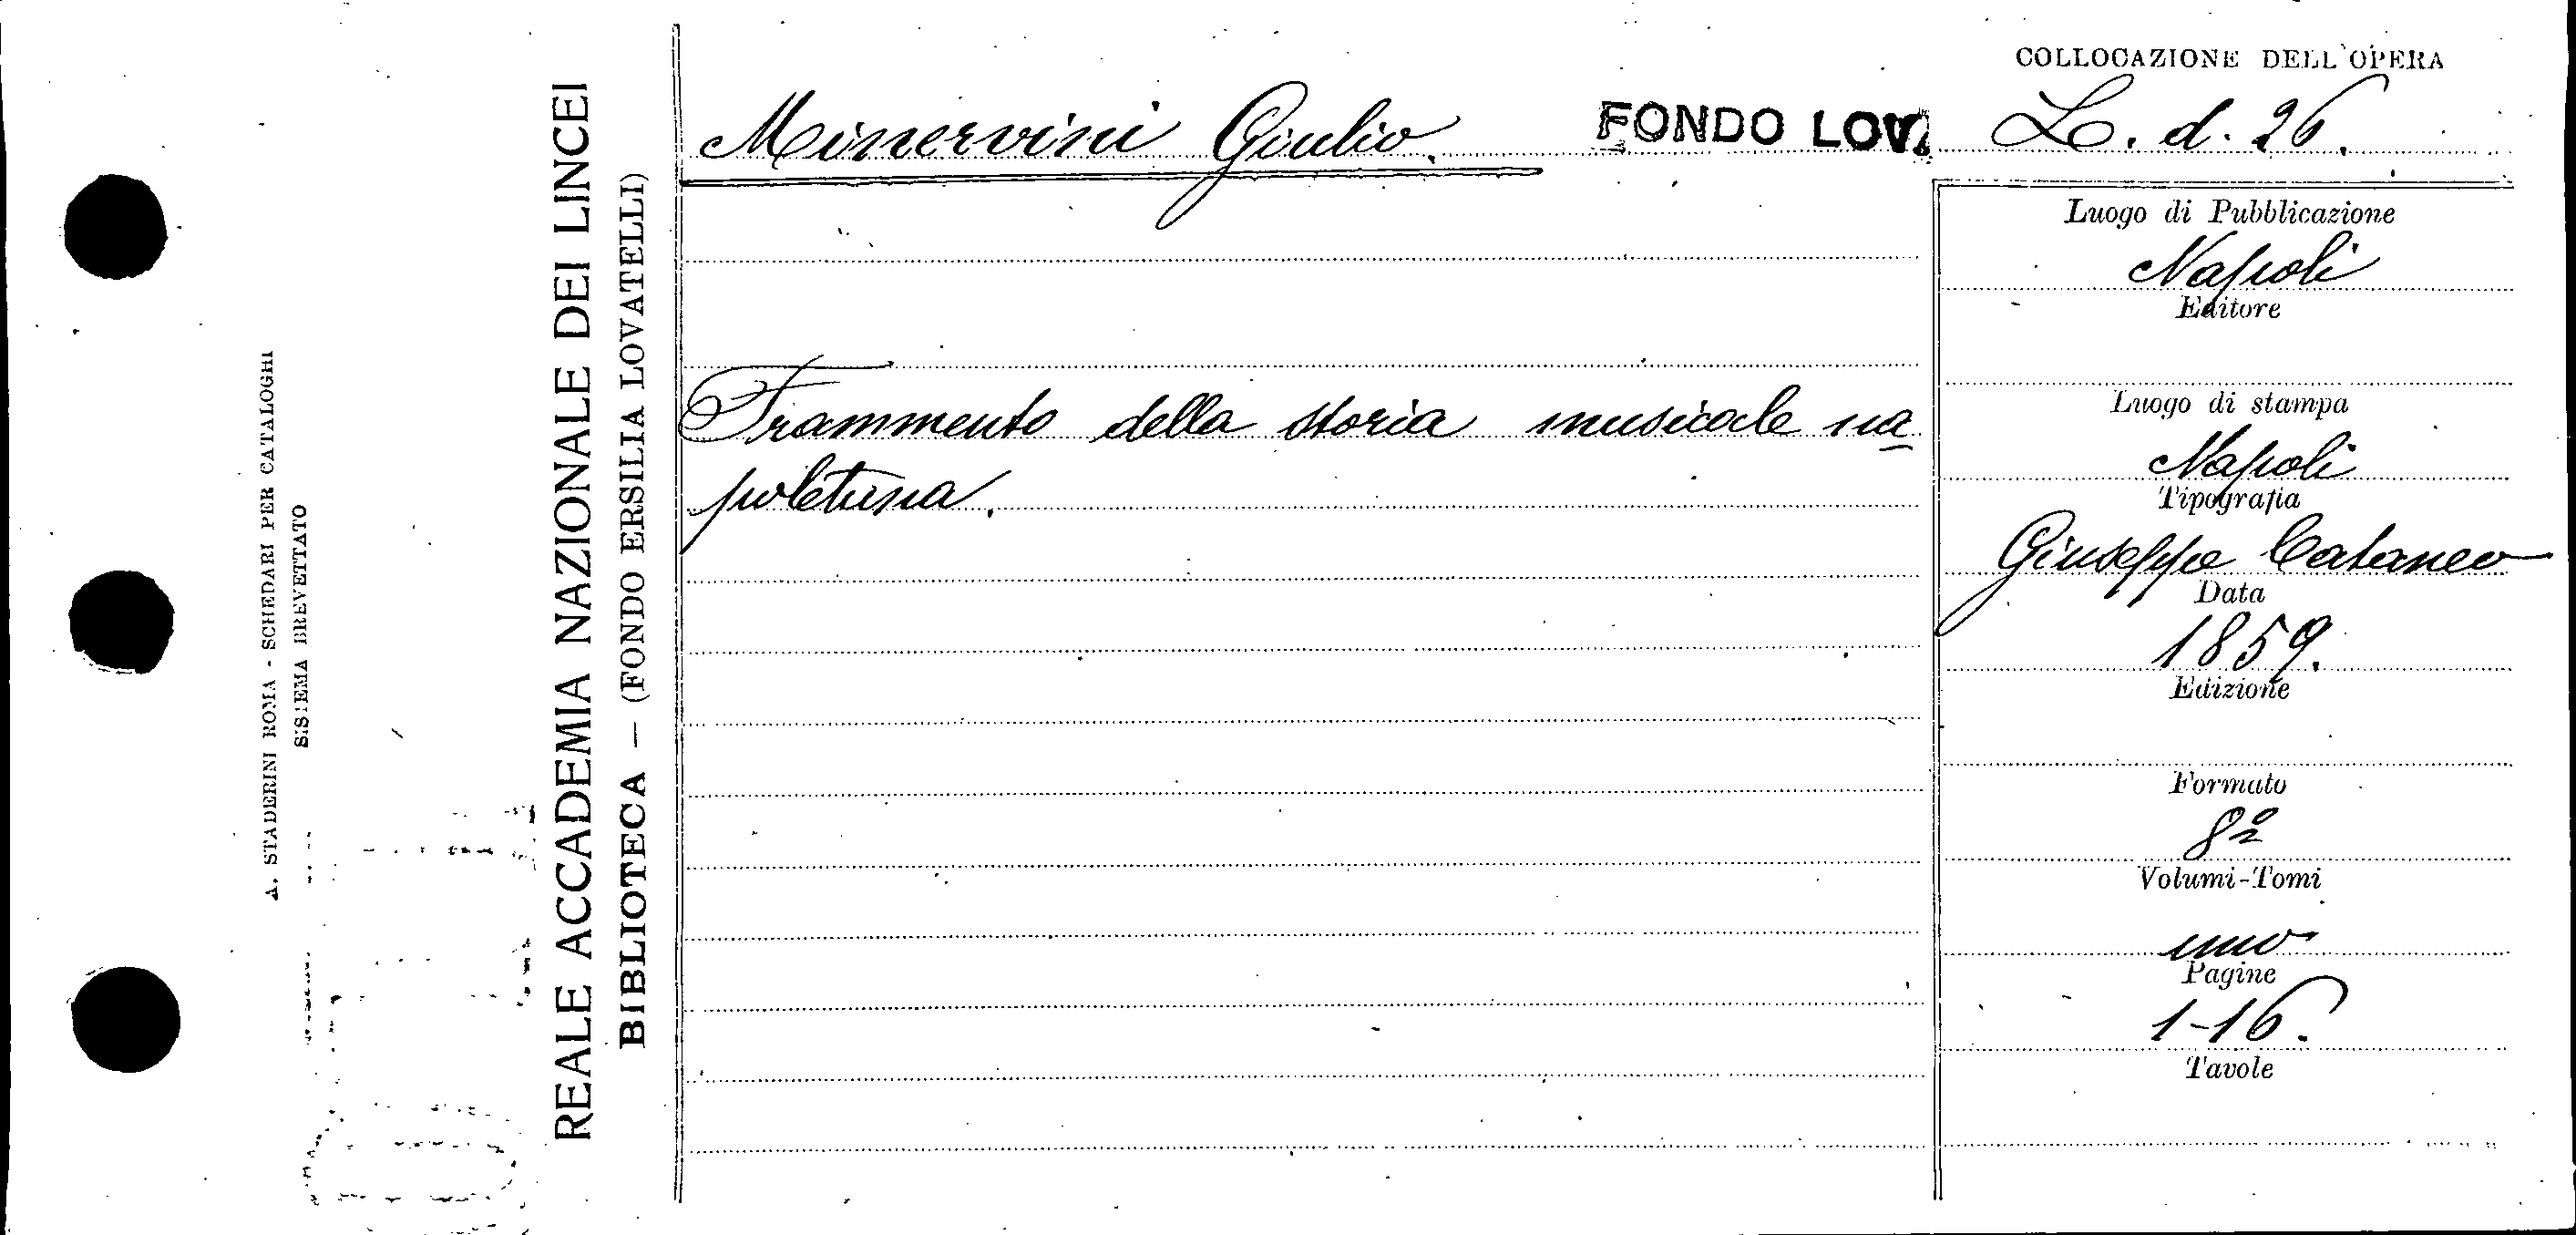 A. STADERINI ROMA - SCHEDARI PER CATALOGHI
SISTEMA BREVETTATO
REALE ACCADEMIA NAZIONALE DEI LINCEI
BIBLIOTECA — (FONDO ERSILIA LOVATELLI)
COLLOCAZIONE DELL'OPERA
Minervini Giulio. FONDO LOV. L. d. 26.
Frammento della storia musicale na
poletana.
Luogo di Pubblicazione
Napoli
Editore
Luogo di stampa
Napoli
Tipografia
Giuseppe Cataneo
Data
1859.
Edizione
Formato
8º
Volumi-Tomi
uno
Pagine
1-16.
Tavole